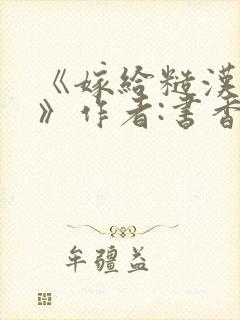 《嫁给糙汉
》作者:书香
牟疆益